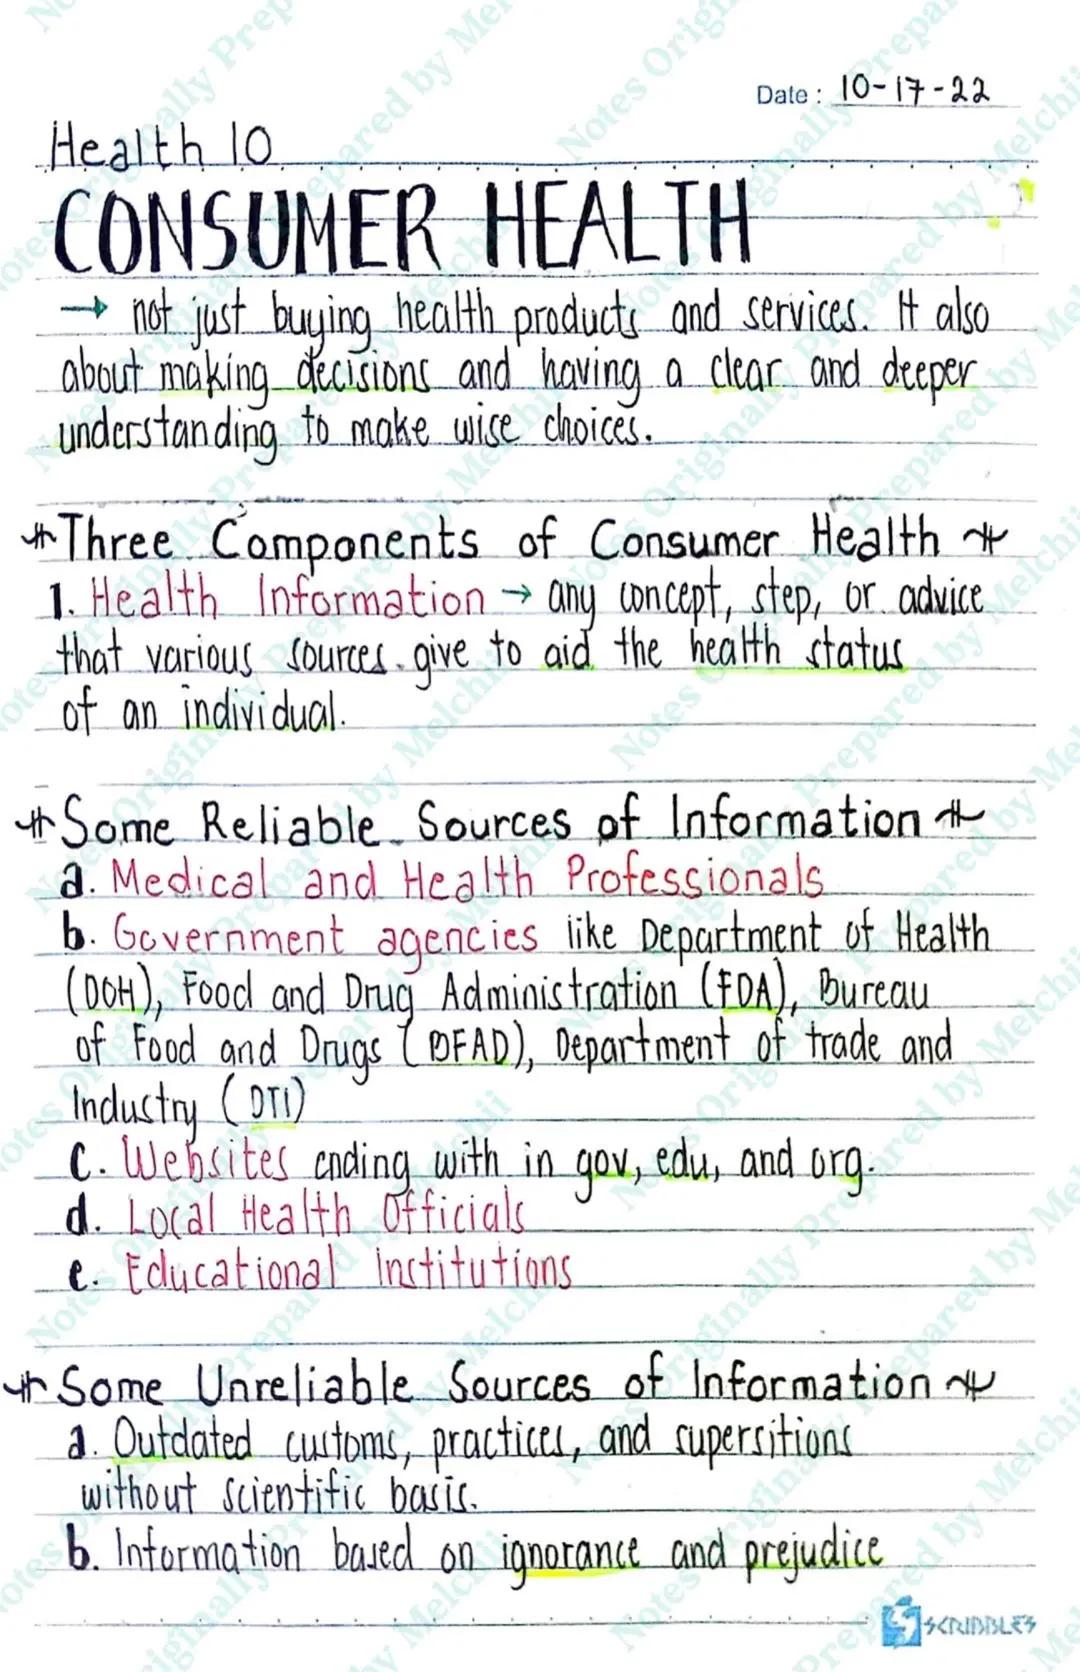 Date: 10-17-22
Health 10
CONSUMER HEALTH
→ not just buying health products and services. It also
about making decisions and having a clear and deeper
understanding to make wise choices.
Three Components of Consumer Health
1. Health Information → any concept, step, or advice
that various sources give to aid the health status
of an individual.
Some Reliable Sources of Information
a. Medical and Health Professionals
b. Government agencies like Department of Health
(DOH), Food and Drug Administration (FDA), Bureau
of Food and Drugs (BFAD), Department of trade and
Industry (DTI)
c. Websites ending with in gov, edu, and org.
d. Local Health Officials
e. Educational institutions
Some Unreliable Sources of Information
a. Outdated customs, practices, and supersitions
without scientific basis.
b. Information based on ignorance and prejudice
SCRIBBLES
Notes Originally Prepared by Melchii